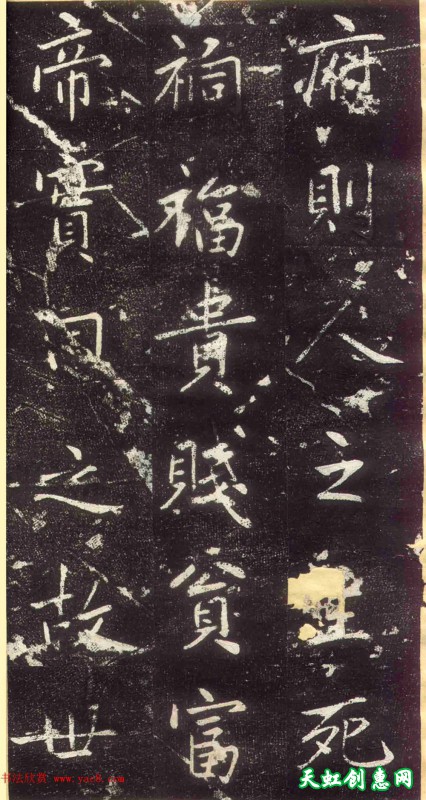 應則人之生死
禍福貴賤貧富
帝實司之故世
书法欣赏 www.yac8.com
天虹创惠网